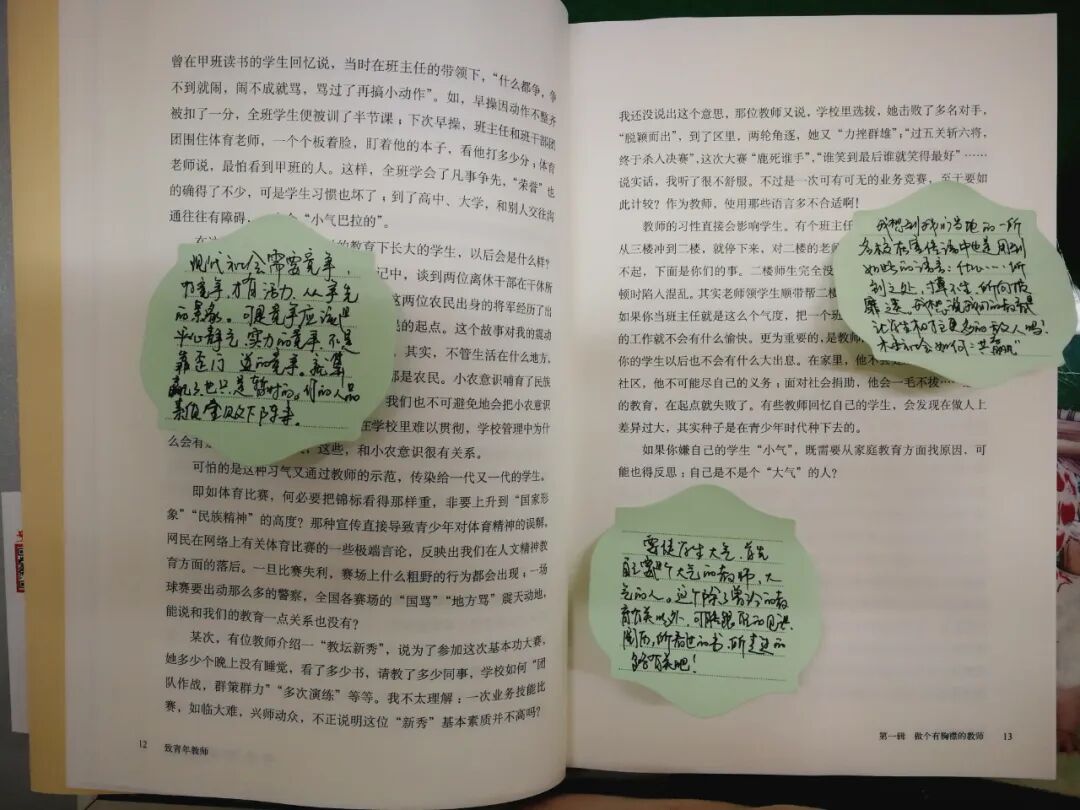 曾在甲班读书的学生回忆说，当时在班主任的带领下，“什么都争，争
不到就闹，闹不成就骂，骂过了再搞小动作”。如，早操因动作不整齐
被扣了一分，全班学生便被训了半节课；下次早操，班主任和班干部团
团围住体育老师，一个个板着脸，盯着他的本子，看他打多少分；体育
老师说，最怕看到甲班的人。这样，全班学会了凡事争先，“荣誉”也
的确得了不少，可是学生习惯也坏了；到了高中、大学，和别人交往沟
通往往有障碍，
“小气巴拉的”。
的教育下长大的学生，以后会是什么样？
记中，谈到两位离休干部在干休所
这两位农民出身的将军经历了出
的起点。这个故事对我的震动
其实，不管生活在什么地方，
都是农民。小农意识哺育了民族
我们也不可避免地会把小农意识
学校里难以贯彻，学校管理中为什
么会有
这些，和小农意识很有关系。
可怕的是这种习气又通过教师的示范，传染给一代又一代的学生。
即如体育比赛，何必要把锦标看得那样重，非要上升到“国家形
象”“民族精神”的高度？那种宣传直接导致青少年对体育精神的误解，
网民在网络上有关体育比赛的一些极端言论，反映出我们在人文精神教
育方面的落后。一旦比赛失利，赛场上什么粗野的行为都会出现；一场
球赛要出动那么多的警察，全国各赛场的“国骂”“地方骂”震天动地，
能说和我们的教育一点关系也没有？
某次，有位教师介绍一“教坛新秀”，说为了参加这次基本功大赛，
她多少个晚上没有睡觉，看了多少书，请教了多少同事，学校如何“团
队作战，群策群力”“多次演练”等等。我不太理解：一次业务技能比
赛，如临大难，兴师动众，不正说明这位“新秀”基本素质并不高吗？
12 致青年教师
现代社会需要竞争，
有竞争，才有活力
可是竞争应该是
平心静气，实力的竞争，不是
靠歪门 道的竞争。就算
赢了也只是暂时的。你的人品
我还没说出这个意思，那位教师又说，学校里选拔，她击败了多名对手，
“脱颖而出”，到了区里，两轮角逐，她又“力挫群雄”，“过五关斩六将，
终于杀人决赛”，这次大赛“鹿死谁手”，“谁笑到最后谁就笑得最好”……
说实话，我听了很不舒服。不过是一次可有可无的业务竞赛，至于要如
此计较？作为教师，使用那些语言多不合适啊！
教师的习性直接会影响学生。有个班主任
从三楼冲到二楼，就停下来，对二楼的老师
不起，下面是你们的事。二楼师生完全没
顿时陷入混乱。其实老师领学生顺带帮二楼
如果你当班主任就是这么个气度，把一个班
的工作就不会有什么愉快。更为重要的，是教师
你的学生以后也不会有什么大出息。在家里，他不会
社区，他不可能尽自己的义务；面对社会捐助，他会一毛不拔……
的教育，在起点就失败了。有些教师回忆自己的学生，会发现在做人上
差异过大，其实种子是在青少年时代种下去的。
如果你嫌自己的学生“小气”，既需要从家庭教育方面找原因，可
能也得反思：自己是不是个“大气”的人？
我想到我们当地的一所
名校在宣传语中也是用到
如此的语言：
我想说我们的教育是
让学生和
更多的敌人吗？
如何“共赢”
要使学生大气，首先
大气的教师，大
气的人。这个除了曾经的教
育有关以外，可能跟
阅历，所看过的书，所走过的
路有关吧！
第一辑 做个有胸襟的教师 13